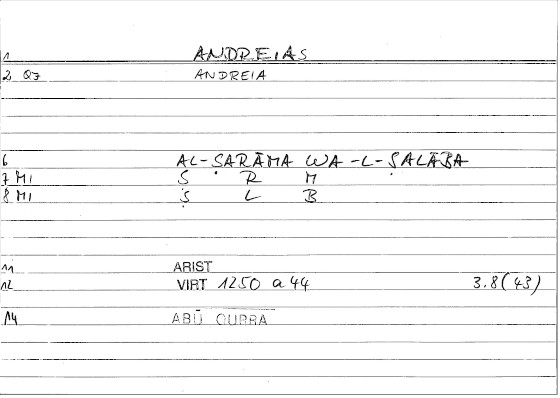 1 ANDREIAS
2 Q7 ANDREIA
6 AL-ṢARĀMA WA-L-ṢALĀBA
7 M1 Ṣ R M
8 M1 Ṣ L B
11 ARIST
12 VIRT 1250 a 44 3.8(43)
14 ABŪ QURRA